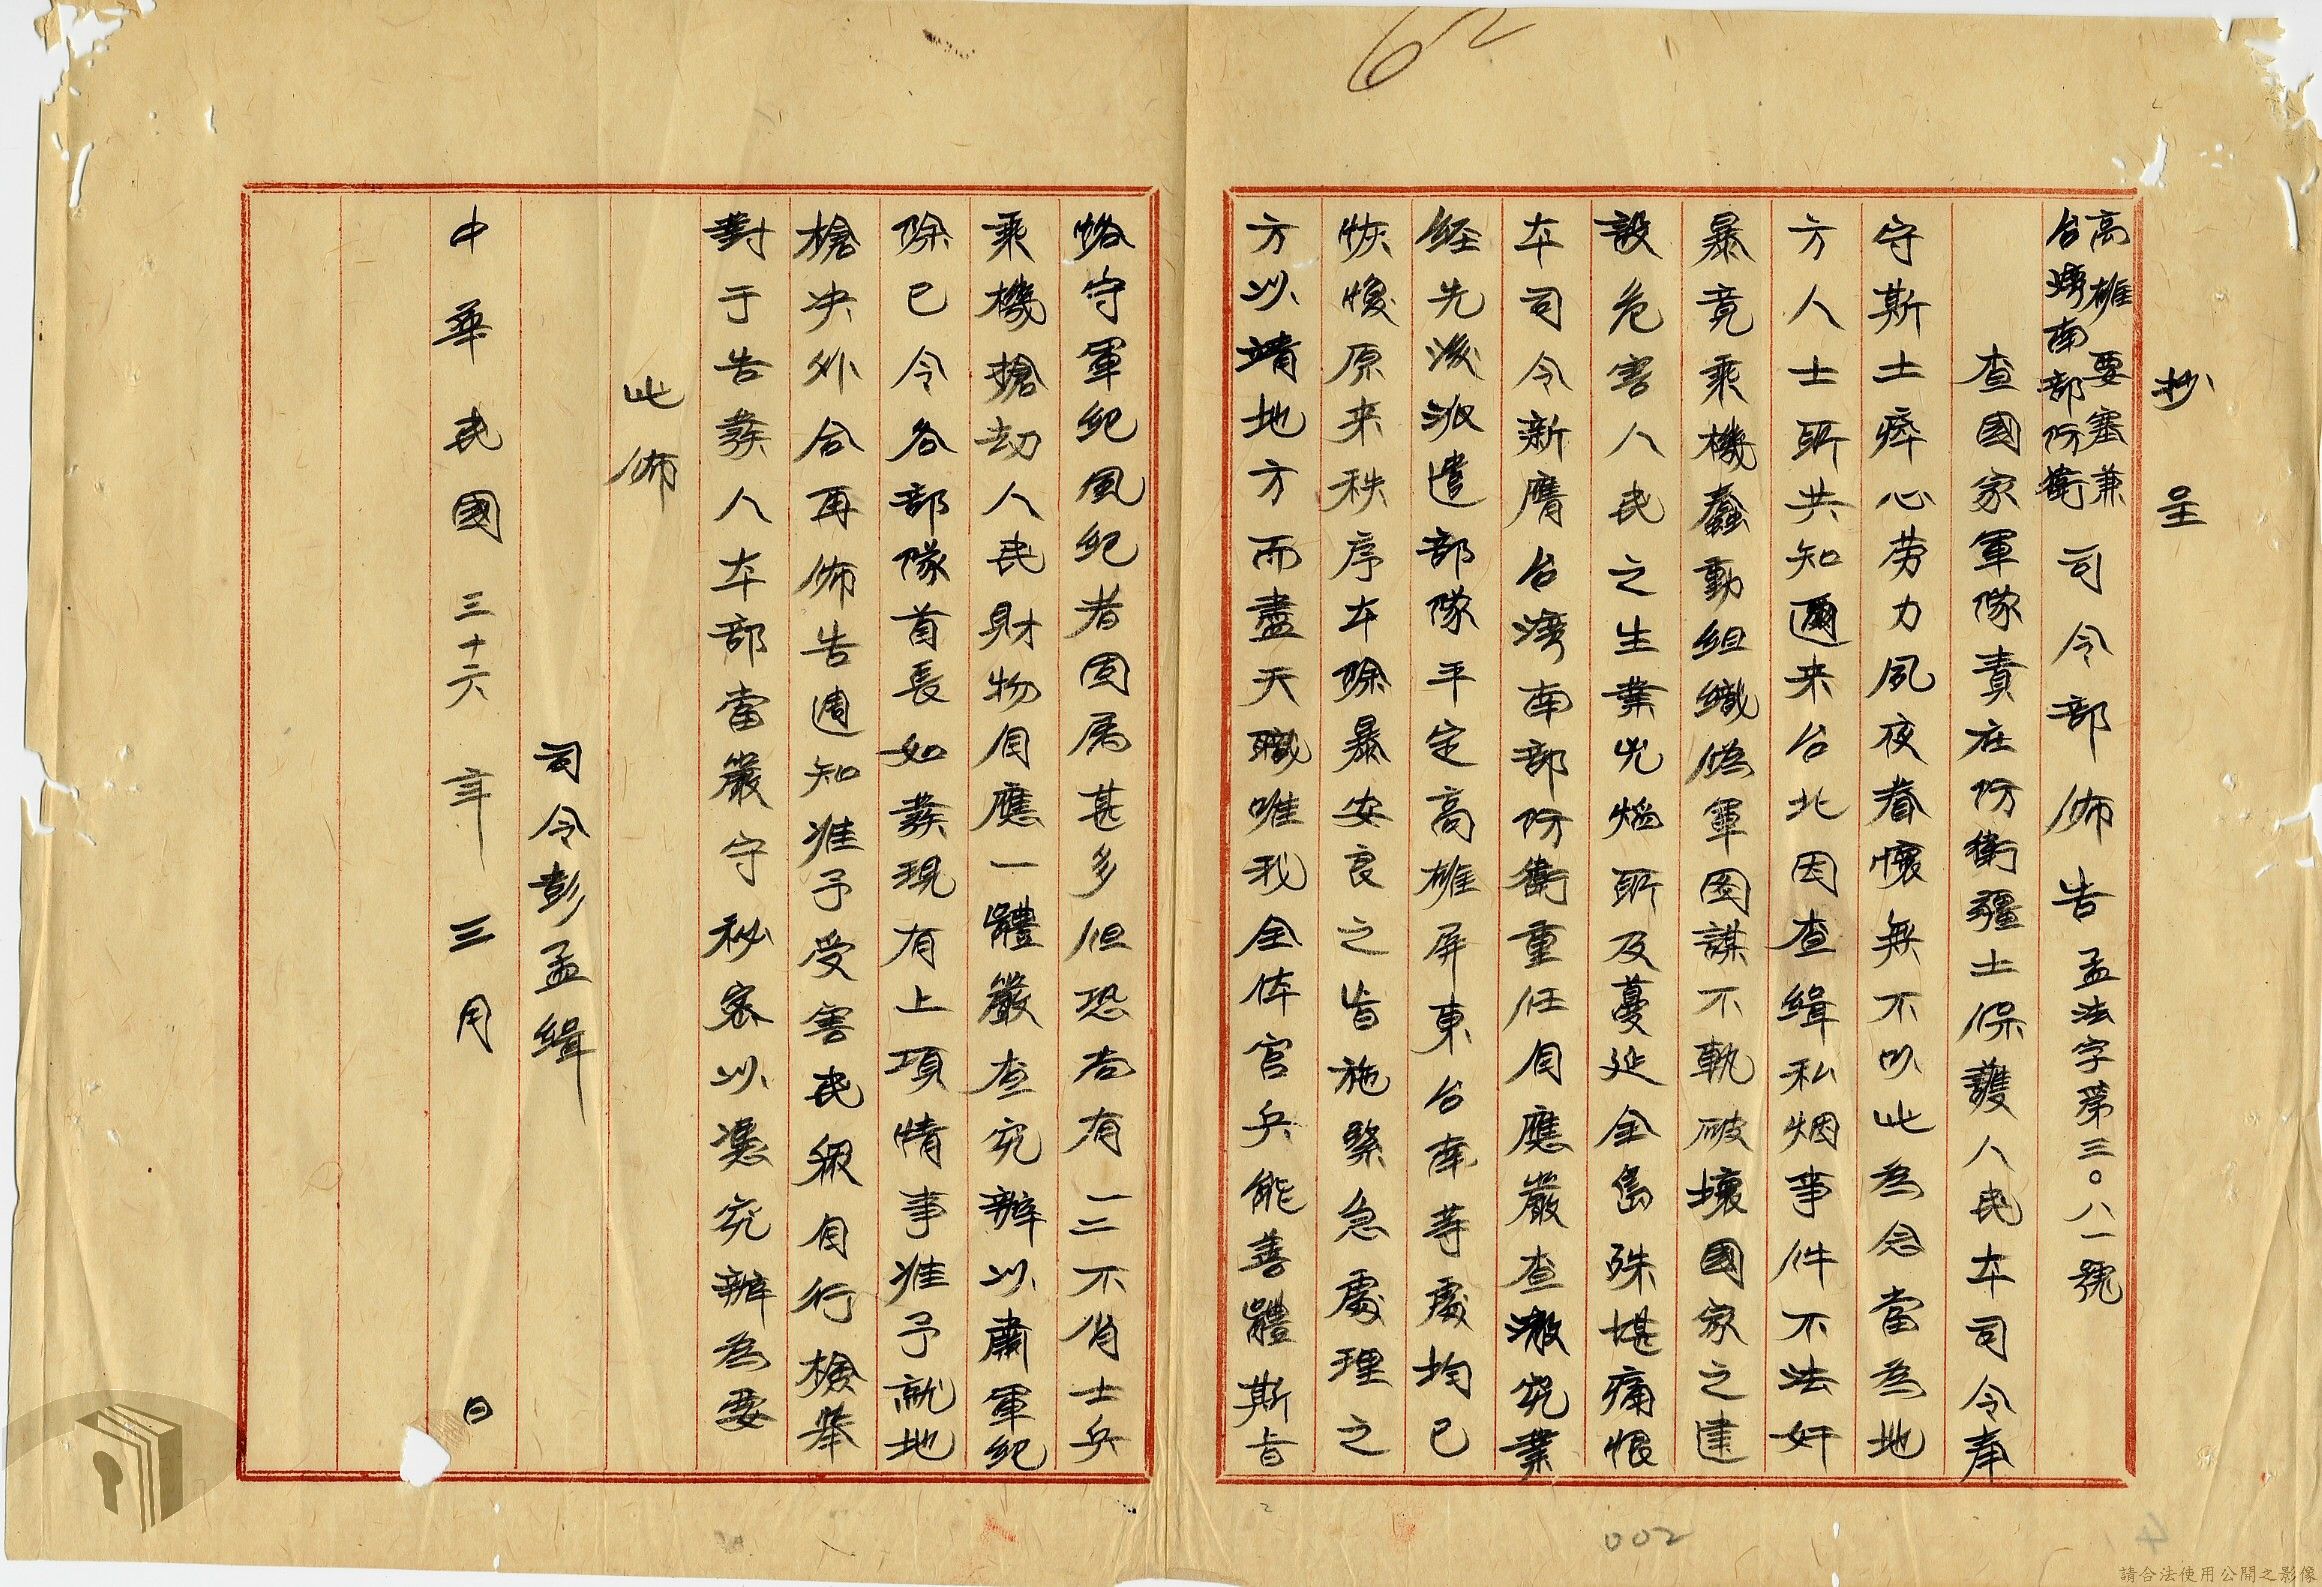 抄呈
高雄要塞兼
台灣南部防衛
司令部佈告 孟法字第三〇八一號
查國家軍隊責在防衛疆土保護人民本司令奉
守斯土瘁心劳力夙夜眷懷無不以此為念當為地
方人士所共知邇来台北因查缉私烟事件不法奸
暴竟乘機蠢動组織偽軍圖謀不軌破壞國家之建
設危害人民之生業兇焰所及蔓延全島殊堪痛恨
本司令新膺台灣南部防衛重任自應嚴查澈究業
経先後派遣部隊平定高雄屏東台南等處均已
恢復原来秩序本除暴安良之旨施緊急處理之
方以靖地方而盡天職唯我全体官兵能善體斯旨
恪守軍紀風紀者固属甚多但恐尚有一二不肖士兵
乘機搶劫人民財物自應一體嚴查究辦以肅軍紀
除已令各部隊首長如發現有上項情事准予就地
槍决外合再佈告週知准予受害民眾自行檢舉
對于告發人本部當嚴守秘密以憑究辦為要
此佈
司令彭孟緝
中華民國三十六年三月 日
62
002
4
請合法使用公開之影像